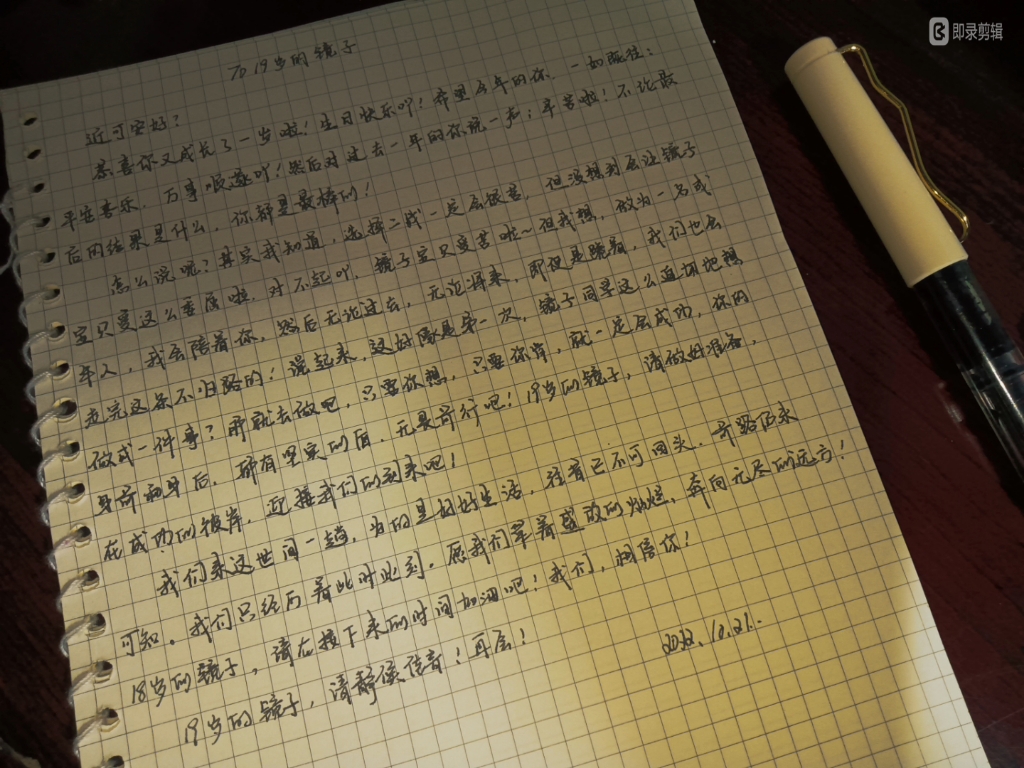 即录剪辑
To 19岁的镜子
近可安好?
恭喜你又成长了一岁啦!生日快乐吖!希望今年的你、一如既往:
平安喜乐,万事顺遂吖!然后对过去一年的你说一声:辛苦啦!不论最
后的结果是什么,你都是最棒的!
怎么说呢?其实我知道,选择二战一定会很苦,但没想到会让镜子
宝贝受这么委屈啦,对不起吖,镜子宝贝受苦啦~但我想,做为一名成
年人,我会陪着你,然后无论过去,无论将来,即便是跪着,我们也会
走完这条不归路的!说起来,这好像是第一次,镜子同学这么迫切地想
做成一件事?那就去做吧,只要你想,只要你肯,就一定会成功,你的
身前和身后,都有坚实的盾,无畏前行吧!19岁的镜子,请做好准备,
在成功的彼岸,迎接我们的到来吧!
我们来这世间一趟,为的是好好生活,往者已不可回头,来路仍未
可知,我们只经历着此时此刻,愿我们掌着盛放的灿烂,奔向无尽的远方!
18岁的镜子,请在接下来的时间加油吧!我们,相信你!
19岁的镜子,请静候佳音!再会!
2022.10.21.